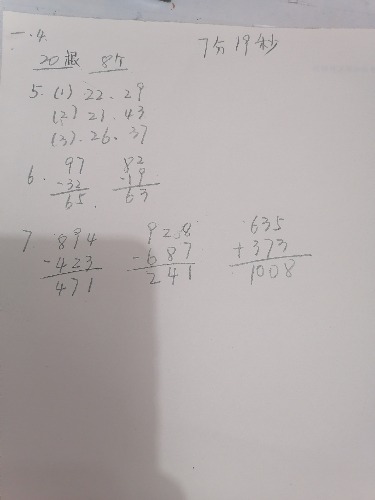 一.4
7分19秒
20根 8个
5. (1) 22、29
(2) 21、43
(3). 26、37
6. 97 82
-32 -19
65. 63
7 894 928 635
-423 -687 +373
471 241 1008